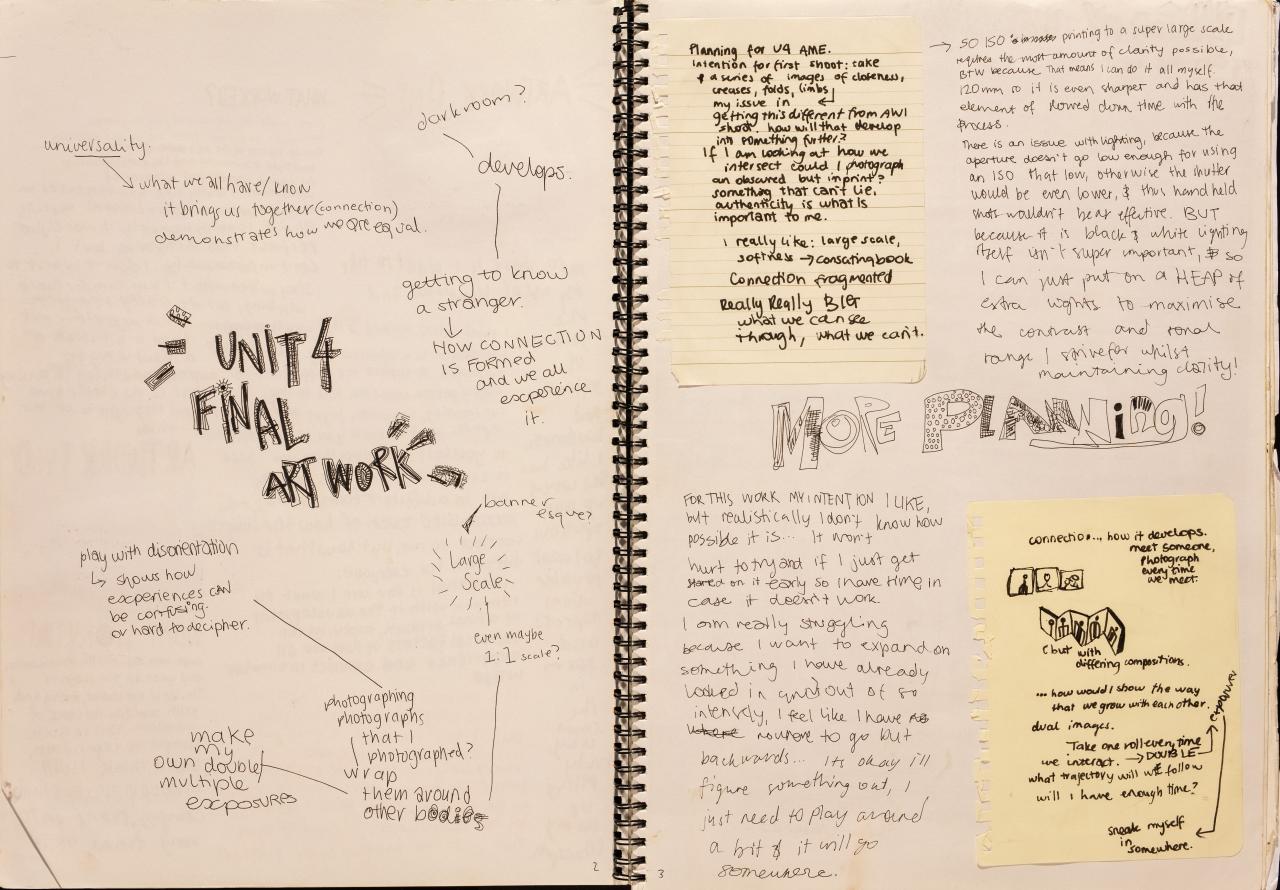 universality.
what we all have/know
it brings us together (connection)
demonstrates how we are equal.
darkroom?
develops.
getting to know
a stranger.
HOW CONNECTION
IS FORMED
and we all
experience
it.
UNIT 4
FINAL
ARTWORK
banner
esque?
Large
Scale
even maybe
1:1 scale?
play with disorientation
shows how
experiences can
be confusing.
or hard to decipher.
photographing
photographs
that I
photographed?
wrap
them around
other bodies
make
my
own double/
multiple
exposures
2
Planning for U4 AME.
Intention for first shoot: take
a series of images of closeness,
creases, folds, limbs
my issue in
getting this different from AW1
shoot. how will that develop
into something further?
If I am looking at how we
intersect could I photograph
an obscured but imprint?
something that can't lie.
authenticity is what is
important to me.
I really like: large scale,
softness →
book
Connection fragmented
Really Really BIG
what we can see
through, what we can't.
→ SO ISO printing to a super large scale
requires the most amount of clarity possible,
BTW because That means I can do it all myself.
120mm so it is even sharper and has that
element of slowed down time with the
process.
There is an issue with lighting, because the
aperture doesn't go low enough for using
an ISO that low, otherwise the shutter
would be even lower, & thus hand held
shots wouldn't be as effective. BUT
because it is black & white lighting
itself isn't super important, & so
I can just put on a HEAP of
extra lights to maximise
the contrast and tonal
range I strive for whilst
maintaining clarity!
MORE PLANNING!
FOR THIS WORK MY INTENTION I LIKE,
but realistically I don't know how
possible it is... It won't
hurt to try and if I just get
started on it early so I have time in
case it doesn't work.
I am really struggling
because I want to expand on
something I have already
looked in and out of so
intensely, I feel like I have no
where nowhere to go but
backwards... Its okay ill
figure something out, I
just need to play around
a bit & it will go
somewhere.
connection... how it develops.
meet someone,
photograph
every time
we meet.
(but with
differing compositions.
... how would I show the way
that we grow with each other.
dual images.
Take one roll every time
we interact. → DOUBLE
exposure
what trajectory will we follow
will I have enough time?
sneak myself
in
somewhere.
3